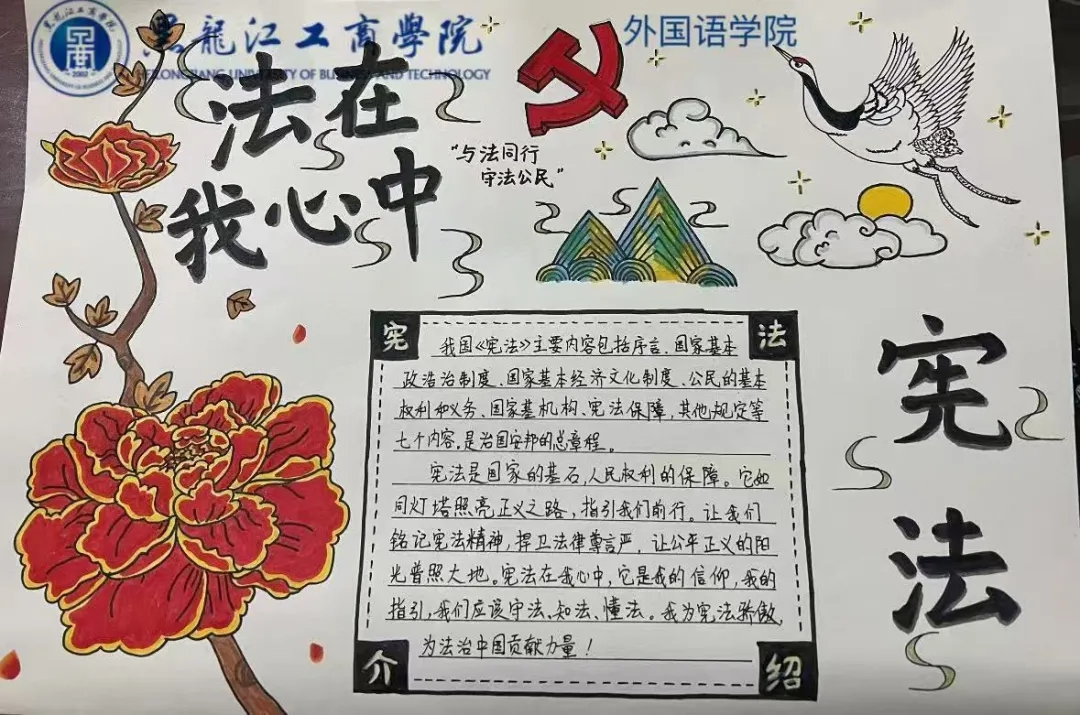 黑龍江工商學院
HEILONGJIANG UNIVERSITY OF BUSINESS AND TECHNOLOGY
2002
外国语学院
法在
我心中
“与法同行
守法公民”
宪法
宪法
介绍
我国《宪法》主要内容包括序言、国家基本
政浩治制度、国家基本经济文化制度、公民的基本
权利和义务、国家基机构、宪法保障,其他规定等
七个内容,是治国安邦的总章程。
宪法是国家的基石,人民权利的保障。它如
同灯塔照亮正义之路,指引我们前行。让我们
铭记宪法精神,捍卫法律尊言严,让公平正义的阳
光普照大地。宪法在我心中,它是我的信仰,我的
指引,我们应该守法、知法、懂法。我为宪法骄傲,
为法治中国贡献力量!